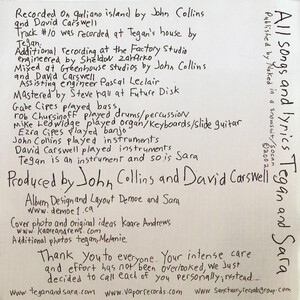 Recorded on galiano island by John Collins
and David Carswell
Track #10 was recorded at Tegan's house by
Tegan.
Additional recording at the Factory Studio
engineered by Sheldon Zaharko
Mixed at Greenhouse Studios by John Collins
and David Carswell
Assisting engineer Pascal Leclair
Mastered by Steve Hall at Future Disk
Gabe Cipes played bass
Rob Chursinoff played drums/percussion
Mike Ledwidge played organ/keyboards/slide guitar
Ezra Cipes played banjo
John Collins played instruments
David Carswell played instruments
Tegan is an instrument and so is Sara
Produced by John Collins and David Carswell
Album Design and Layout Demoe and Sara
www.demoe1.ca
Cover photo and original ideas Kaare Andrews
www.kaareandrews.com
Additional photos tegan, Melanie
Thank you to everyone. Your intense care
and effort has not been overlooked, we Just
decided to call each of you personally, instead...
www.teganandsara.com www.vaporrecords.com www.sanctuaryrecordsgroup.com
All songs and lyrics Tegan and Sara
Published by Naked in a snowsuit/socan ©2002